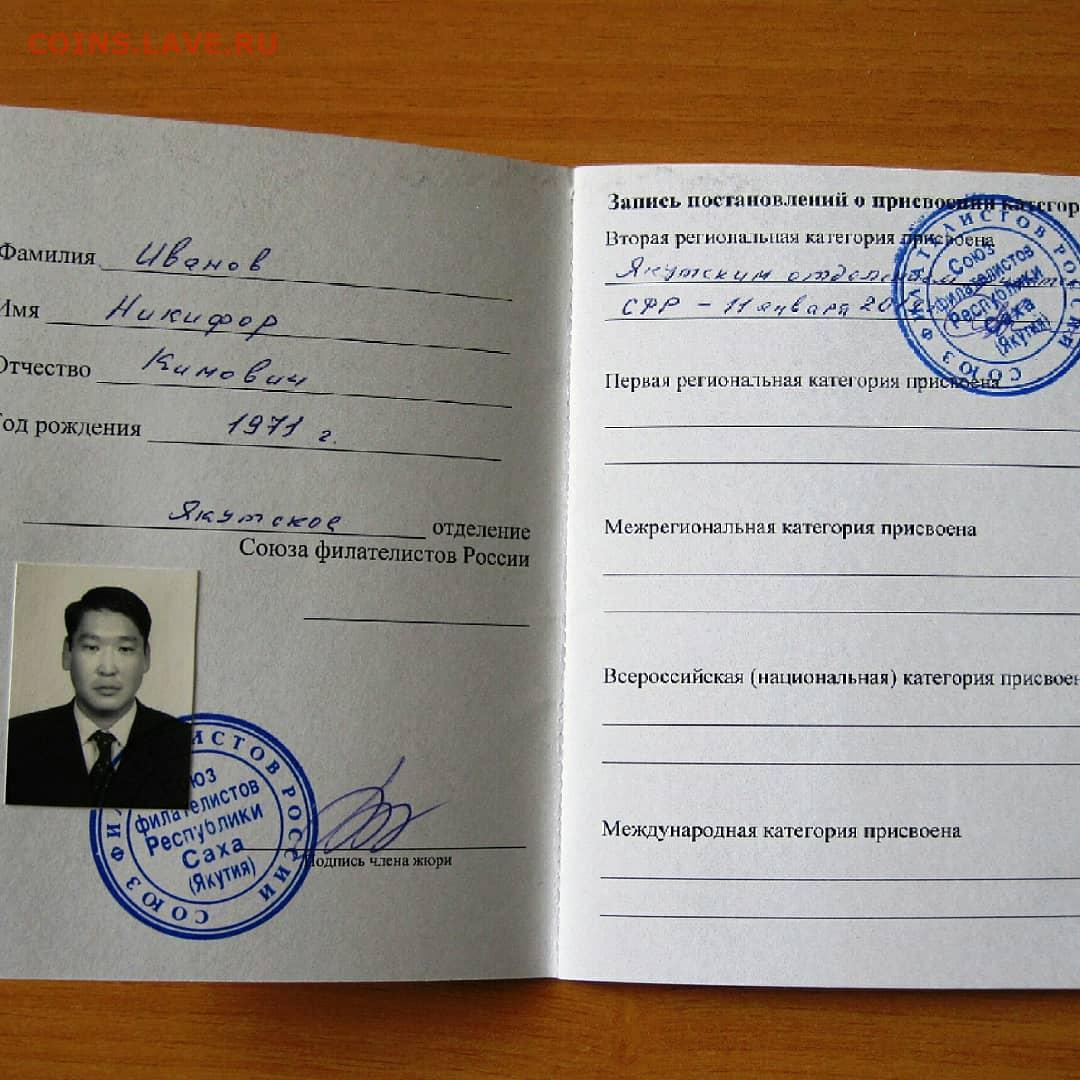 COINS.LAVE.RU
Фамилия Иванов
Имя Никифор
Отчество Кимович
Год рождения 1971 г.
Якутское отделение
Союза филателистов России
СОЮЗ ФИЛАТЕЛИСТОВ РОССИИ
Союз
филателистов
Республики
Саха
(Якутия)
Подпись члена жюри
Запись постановлений о присвоении категор
Вторая региональная категория присвоена
Якутским отделением
СФР - 11 января
СОЮЗ ФИЛАТЕЛИСТОВ РОССИИ
Союз
филателистов
Республики
Саха
(Якутия)
Первая региональная категория присвоена
Межрегиональная категория присвоена
Всероссийская (национальная) категория присвоен
Международная категория присвоена